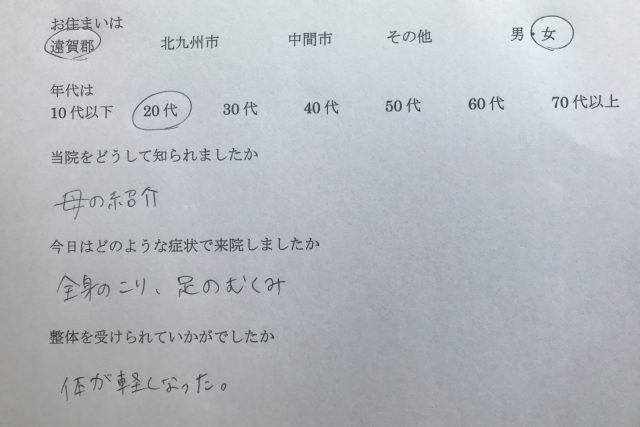 お住まいは
遠賀郡 北九州市 中間市 その他 男・女
年代は
10代以下 20代 30代 40代 50代 60代 70代以上
当院をどうして知られましたか
母の紹介
今日はどのような症状で来院しましたか
全身のこり、足のむくみ
整体を受けられていかがでしたか
体が軽くなった。